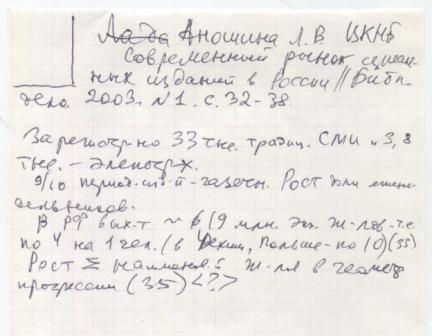 Лада Аношина Л.В ЦКНБ
Современный рынок
ных изданий в России // Библ.
дело. 2003. N1. с. 32-38.
Зарегистр-но 33 тыс. традиц. СМИ и 3,8
тыс. – электр
9/10 период. – газеты. Рост
дельников.
В РФ вых-т ~ 6 млн. экз. ж-лов – т.е
по 4 на 1 чел. (в Чехии, Польше – по 10) (33)
Рост Σ ж-лов в геометр
прогрессии (35) <?>